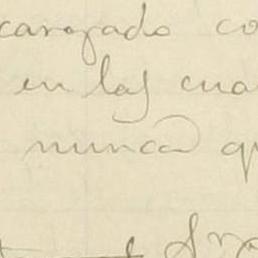 cargado co
en las cua
nunca qu